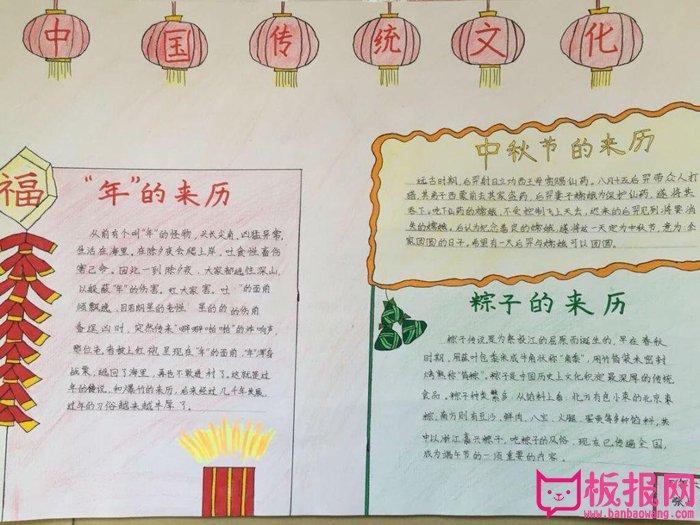 中国传统文化
福
“年”的来历
从前有个叫“年”的怪物，头长尖角，凶猛异常，
生活在海里，在除夕夜会爬上岸，吐食牲畜伤
害己命。因此一到除夕夜，大家都逃往深山，
以躲蔽“年”的伤害。 的面前
备逞凶时，突然传来“噼噼啪啪”的炸响声，
战栗，逃回了海里，再也不敢进村了。这就是过
年的传说，和爆竹的来历，后来经过几千年发展，
过年的习俗越来越丰厚了。
中秋节的来历
远古时期，后羿射日立功西王母赏赐仙药。八月十五后羿带众人打
吞下。吃下仙药的嫦娥，不受控制飞上天去，迟来的后羿见到将要消
失的嫦娥，后认为纪念善良的嫦娥，遂将这一天定为中秋节，意为全
家团圆的日子。希望有一天后羿与嫦娥可以团圆。
粽子的来历
粽子传说是为祭投江的屈原而诞生的，早在春秋
时期，用菰叶包黍米成牛角状称“角黍”，用竹筒装米密封
烤熟称“筒粽”。粽子是中国历史上文化积淀最深厚的传统
食品。粽子种类繁多，从馅料上看，北方有包小枣的北京枣
粽，南方则有豆沙，鲜肉，八宝，火腿，蛋黄等多种馅料，其
中以浙江嘉兴粽子，吃粽子的风俗，现在已传遍全国，
成为端午节的一项重要的内容。
张
板报网
www.banbaowang.com